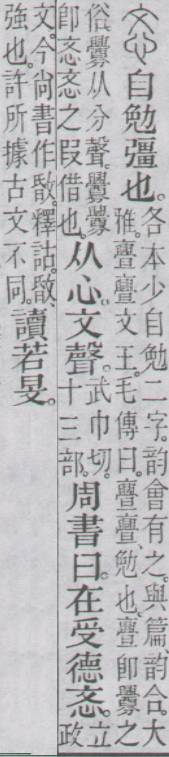 忞自勉彊也。各本少自勉二字。韵會有之。與篇韵合。大雅。亹亹文王。毛傳曰。亹亹勉也。亹卽釁之
俗釁从分聲。釁釁卽忞忞之叚借也。从心。文聲。武巾切。十三部。周書曰。在受德忞。立政
文。今尙書作暋。釋詁。暋強也。許所據古文不同。讀若旻。